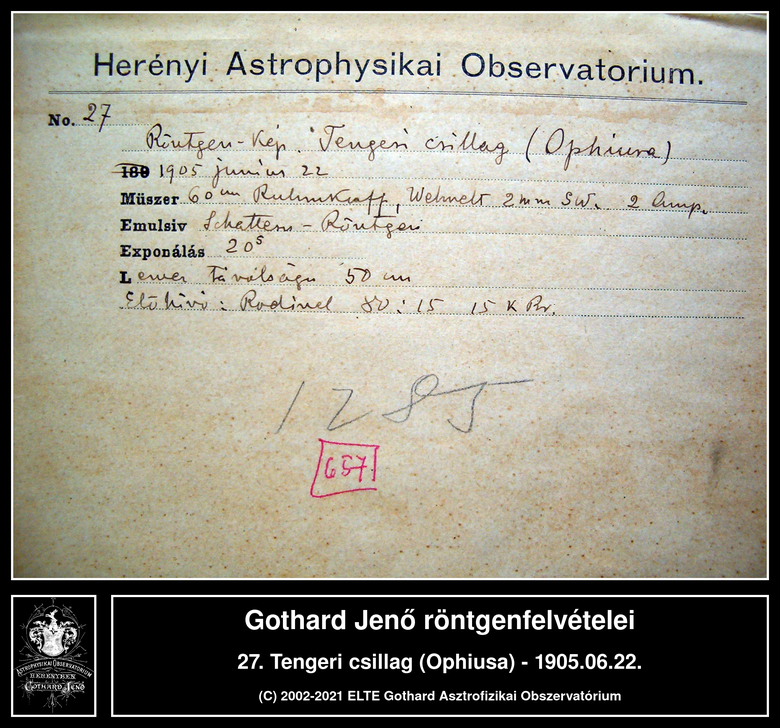 Herényi Astrophysikai Observatorium.
No. 27
Röntgen-Kép. Tengeri csillag (Ophiusa)
180 1905 junius 22
Müszer 60 cm Ruhmkorff, Wehnelt 2 mm SW. 2 Amp.
Emulsiv Schattera-Röntgen
Exponálás 20s
Lemez távolsága 50 cm
Előhivó: Rodinal 80:15 15 K Br.
1285
657
ASTROPHYSIKAI OBSERVATORIUM
HERÉNYBEN
GOTHARD JENŐ
Gothard Jenő röntgenfelvételei
27. Tengeri csillag (Ophiusa) - 1905.06.22.
(C) 2002-2021 ELTE Gothard Asztrofizikai Obszervatórium